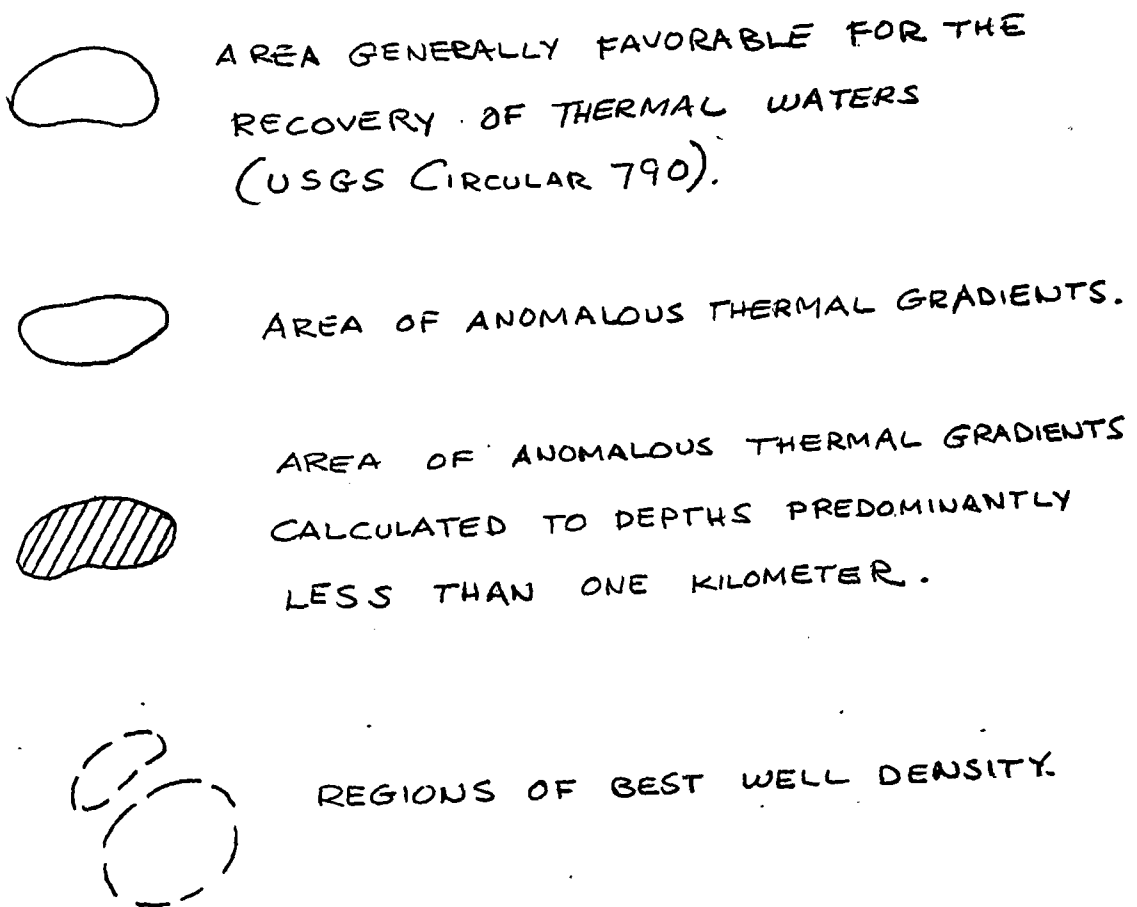 AREA GENERALLY FAVORABLE FOR THE
RECOVERY OF THERMAL WATERS
(USGS CIRCULAR 790).
AREA OF ANOMALOUS THERMAL GRADIENTS.
AREA OF ANOMALOUS THERMAL GRADIENTS
CALCULATED TO DEPTHS PREDOMINANTLY
LESS THAN ONE KILOMETER.
REGIONS OF BEST WELL DENSITY.